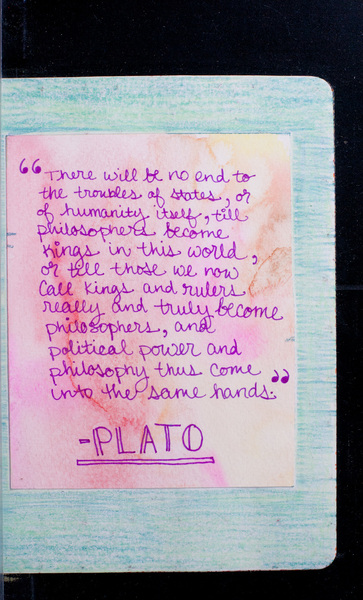 “There will be no end to
the troubles of states, or
of humanity itself, till
philosophers become
kings in this world,
or till those we now
call kings and rulers
really and truly become
philosophers, and
political power and
philosophy thus come
into the same hands.”
-PLATO